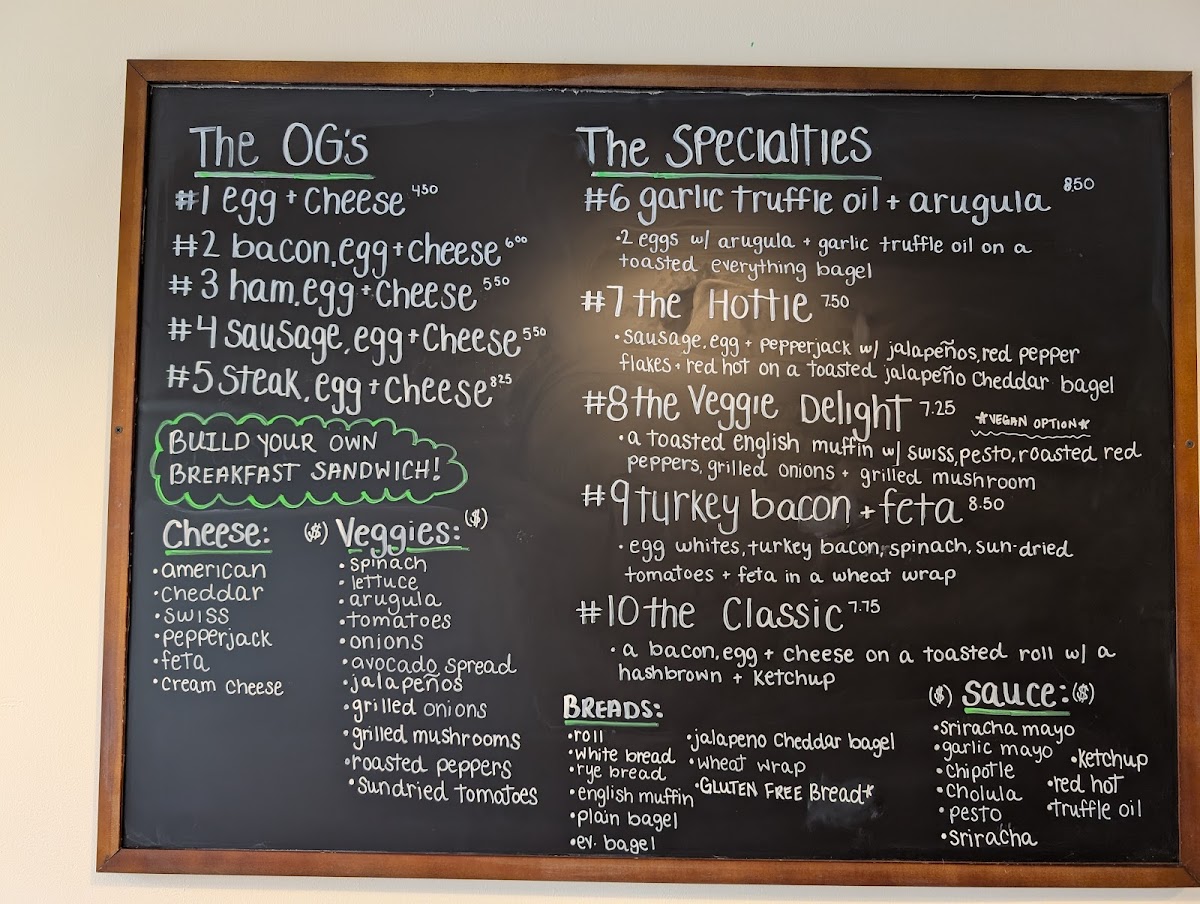 The OG's
#1 egg + cheese 4.50
#2 bacon, egg + cheese 6.00
#3 ham, egg + cheese 5.50
#4 sausage, egg + cheese 5.50
#5 steak, egg + cheese 8.25
BUILD YOUR OWN
BREAKFAST SANDWICH!
Cheese:
•american
•cheddar
•swiss
•pepperjack
•feta
•cream cheese
($) Veggies: ($)
•spinach
•lettuce
•arugula
•tomatoes
•onions
•avocado spread
•jalapeños
•grilled onions
•grilled mushrooms
•roasted peppers
•sundried tomatoes
The Specialties
#6 garlic truffle oil + arugula 8.50
•2 eggs w/ arugula + garlic truffle oil on a
toasted everything bagel
#7 the Hottie 7.50
•sausage, egg + pepperjack w/ jalapeños, red pepper
flakes + red hot on a toasted jalapeño cheddar bagel
#8 the Veggie Delight 7.25 *VEGAN OPTION*
•a toasted english muffin w/ swiss, pesto, roasted red
peppers, grilled onions + grilled mushroom
#9 turkey bacon + feta 8.50
•egg whites, turkey bacon, spinach, sun-dried
tomatoes + feta in a wheat wrap
#10 the Classic 7.75
•a bacon, egg + cheese on a toasted roll w/ a
hashbrown + ketchup
BREADS:
•roll
•white bread
•rye bread
•english muffin
•plain bagel
•ev. bagel
•jalapeno cheddar bagel
•wheat wrap
•GLUTEN FREE Bread*
($) sauce: ($)
•sriracha mayo
•garlic mayo
•chipotle
•cholula
•pesto
•sriracha
•ketchup
•red hot
•truffle oil